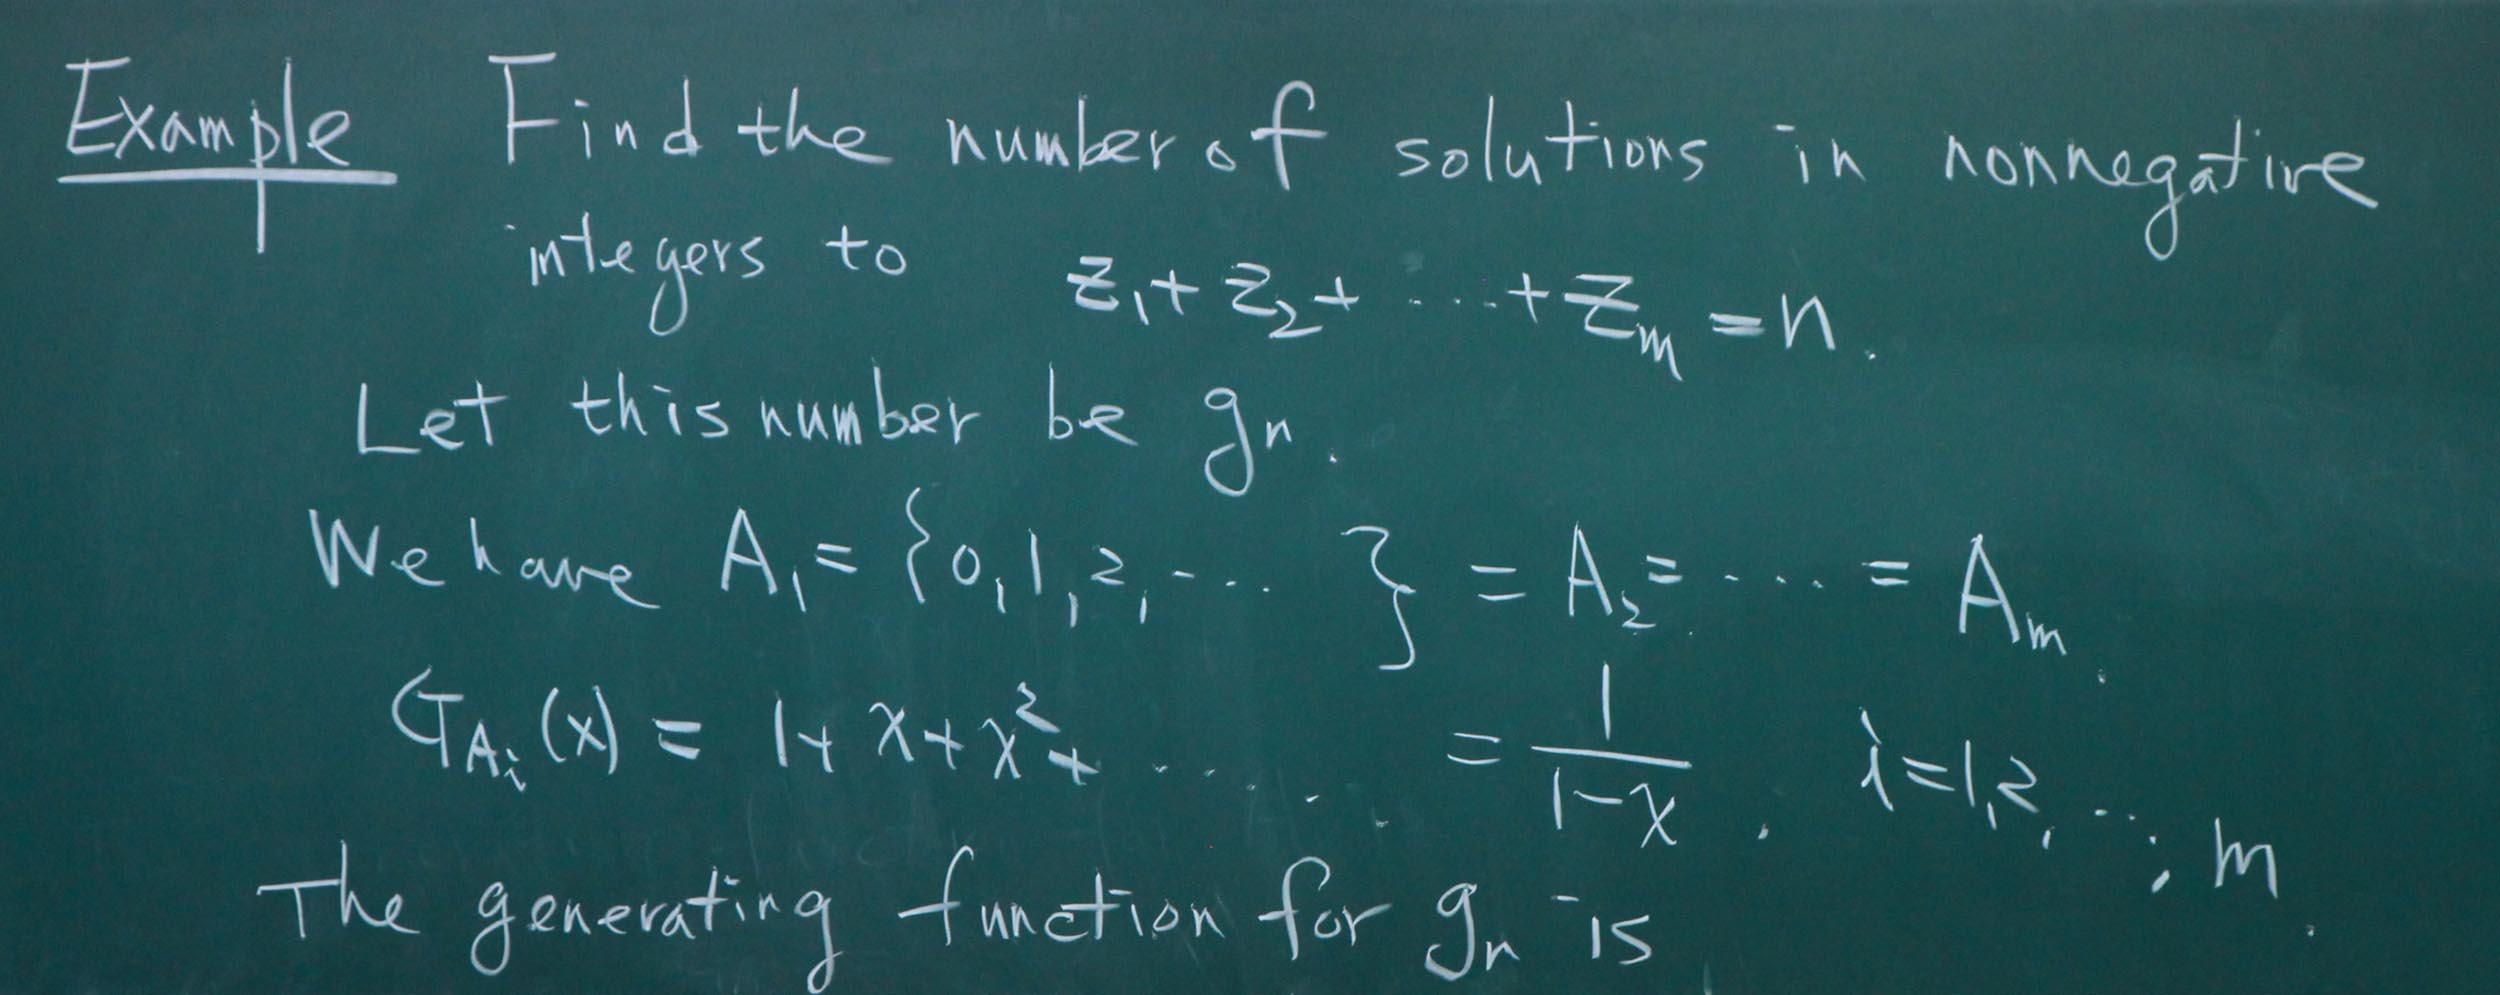 Example Find the number of solutions in nonnegative
integers to z₁ + z₂ + ... + zₘ = n.
Let this number be gₙ.
We have A₁ = {0, 1, 2, ... } = A₂ = .... = Aₘ.
G_{Aᵢ}(x) = 1 + x + x² + ...... = 1/(1-x), i = 1, 2, ..., m.
The generating function for gₙ is